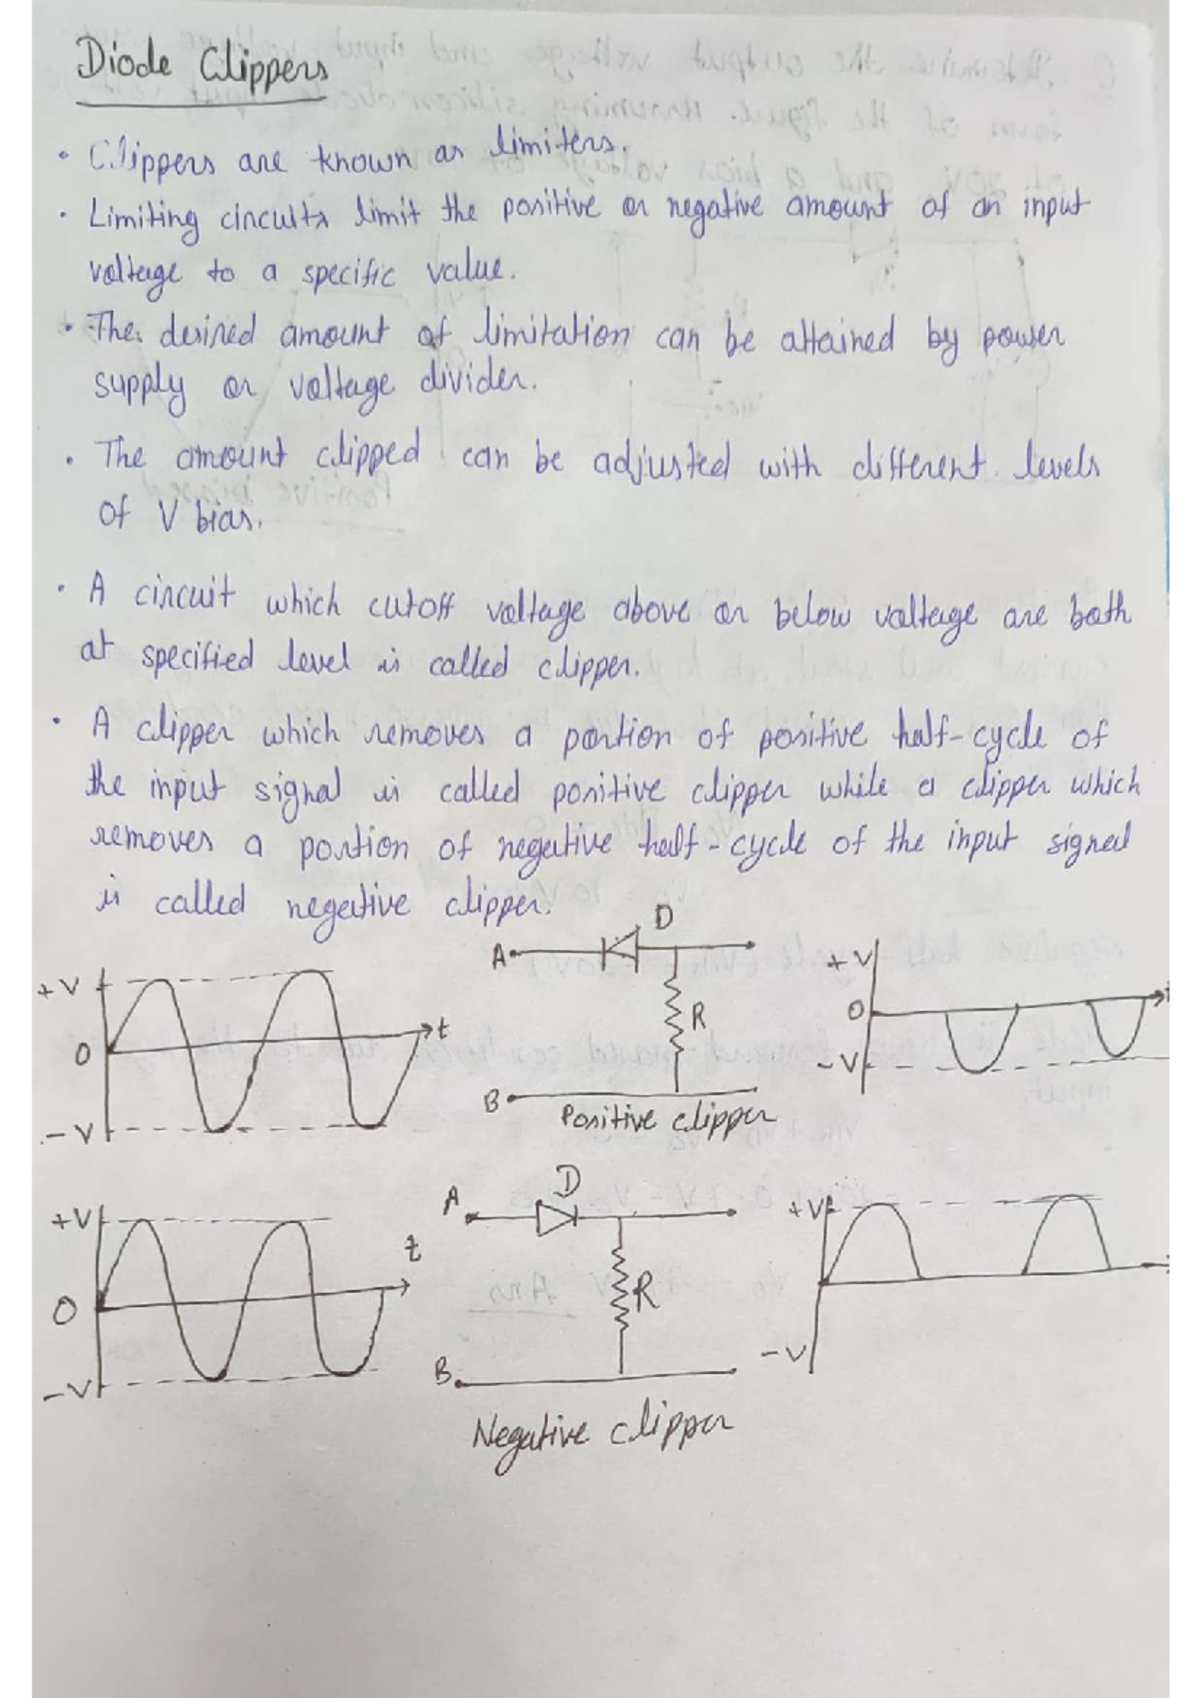 Diode Clippers
• Clippers are known as limiters.
• Limiting circuits limit the positive or negative amount of an input
voltage to a specific value.
• The desired amount of limitation can be attained by power
supply or voltage divider.
• The amount clipped can be adjusted with different levels
of V bias.
• A circuit which cutoff voltage above or below voltage are both
at specified level is called clipper.
• A clipper which removes a portion of positive half-cycle of
the input signal is called positive clipper while a clipper which
removes a portion of negative half-cycle of the input signal
is called negative clipper.
+V
0
-V
t
A
D
R
B
Positive clipper
+V
0
-V
t
+V
0
-V
t
A
D
R
B
Negative clipper
+V
-V